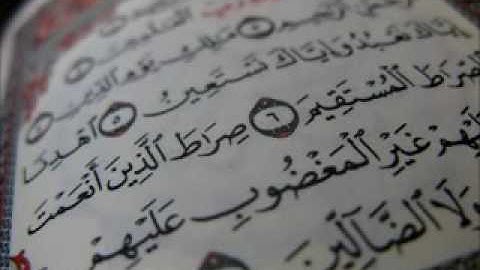 الرَّحْمَٰنِ الرَّحِيمِ مَٰلِكِ يَوْمِ الدِّينِ
إِيَّاكَ نَعْبُدُ وَإِيَّاكَ نَسْتَعِينُ ٥ ٱهْدِنَا
ٱلصِّرَاطَ ٱلْمُسْتَقِيمَ ٦ صِرَاطَ ٱلَّذِينَ أَنْعَمْتَ
عَلَيْهِمْ غَيْرِ ٱلْمَغْضُوبِ عَلَيْهِمْ
وَلَا ٱلضَّآلِّينَ